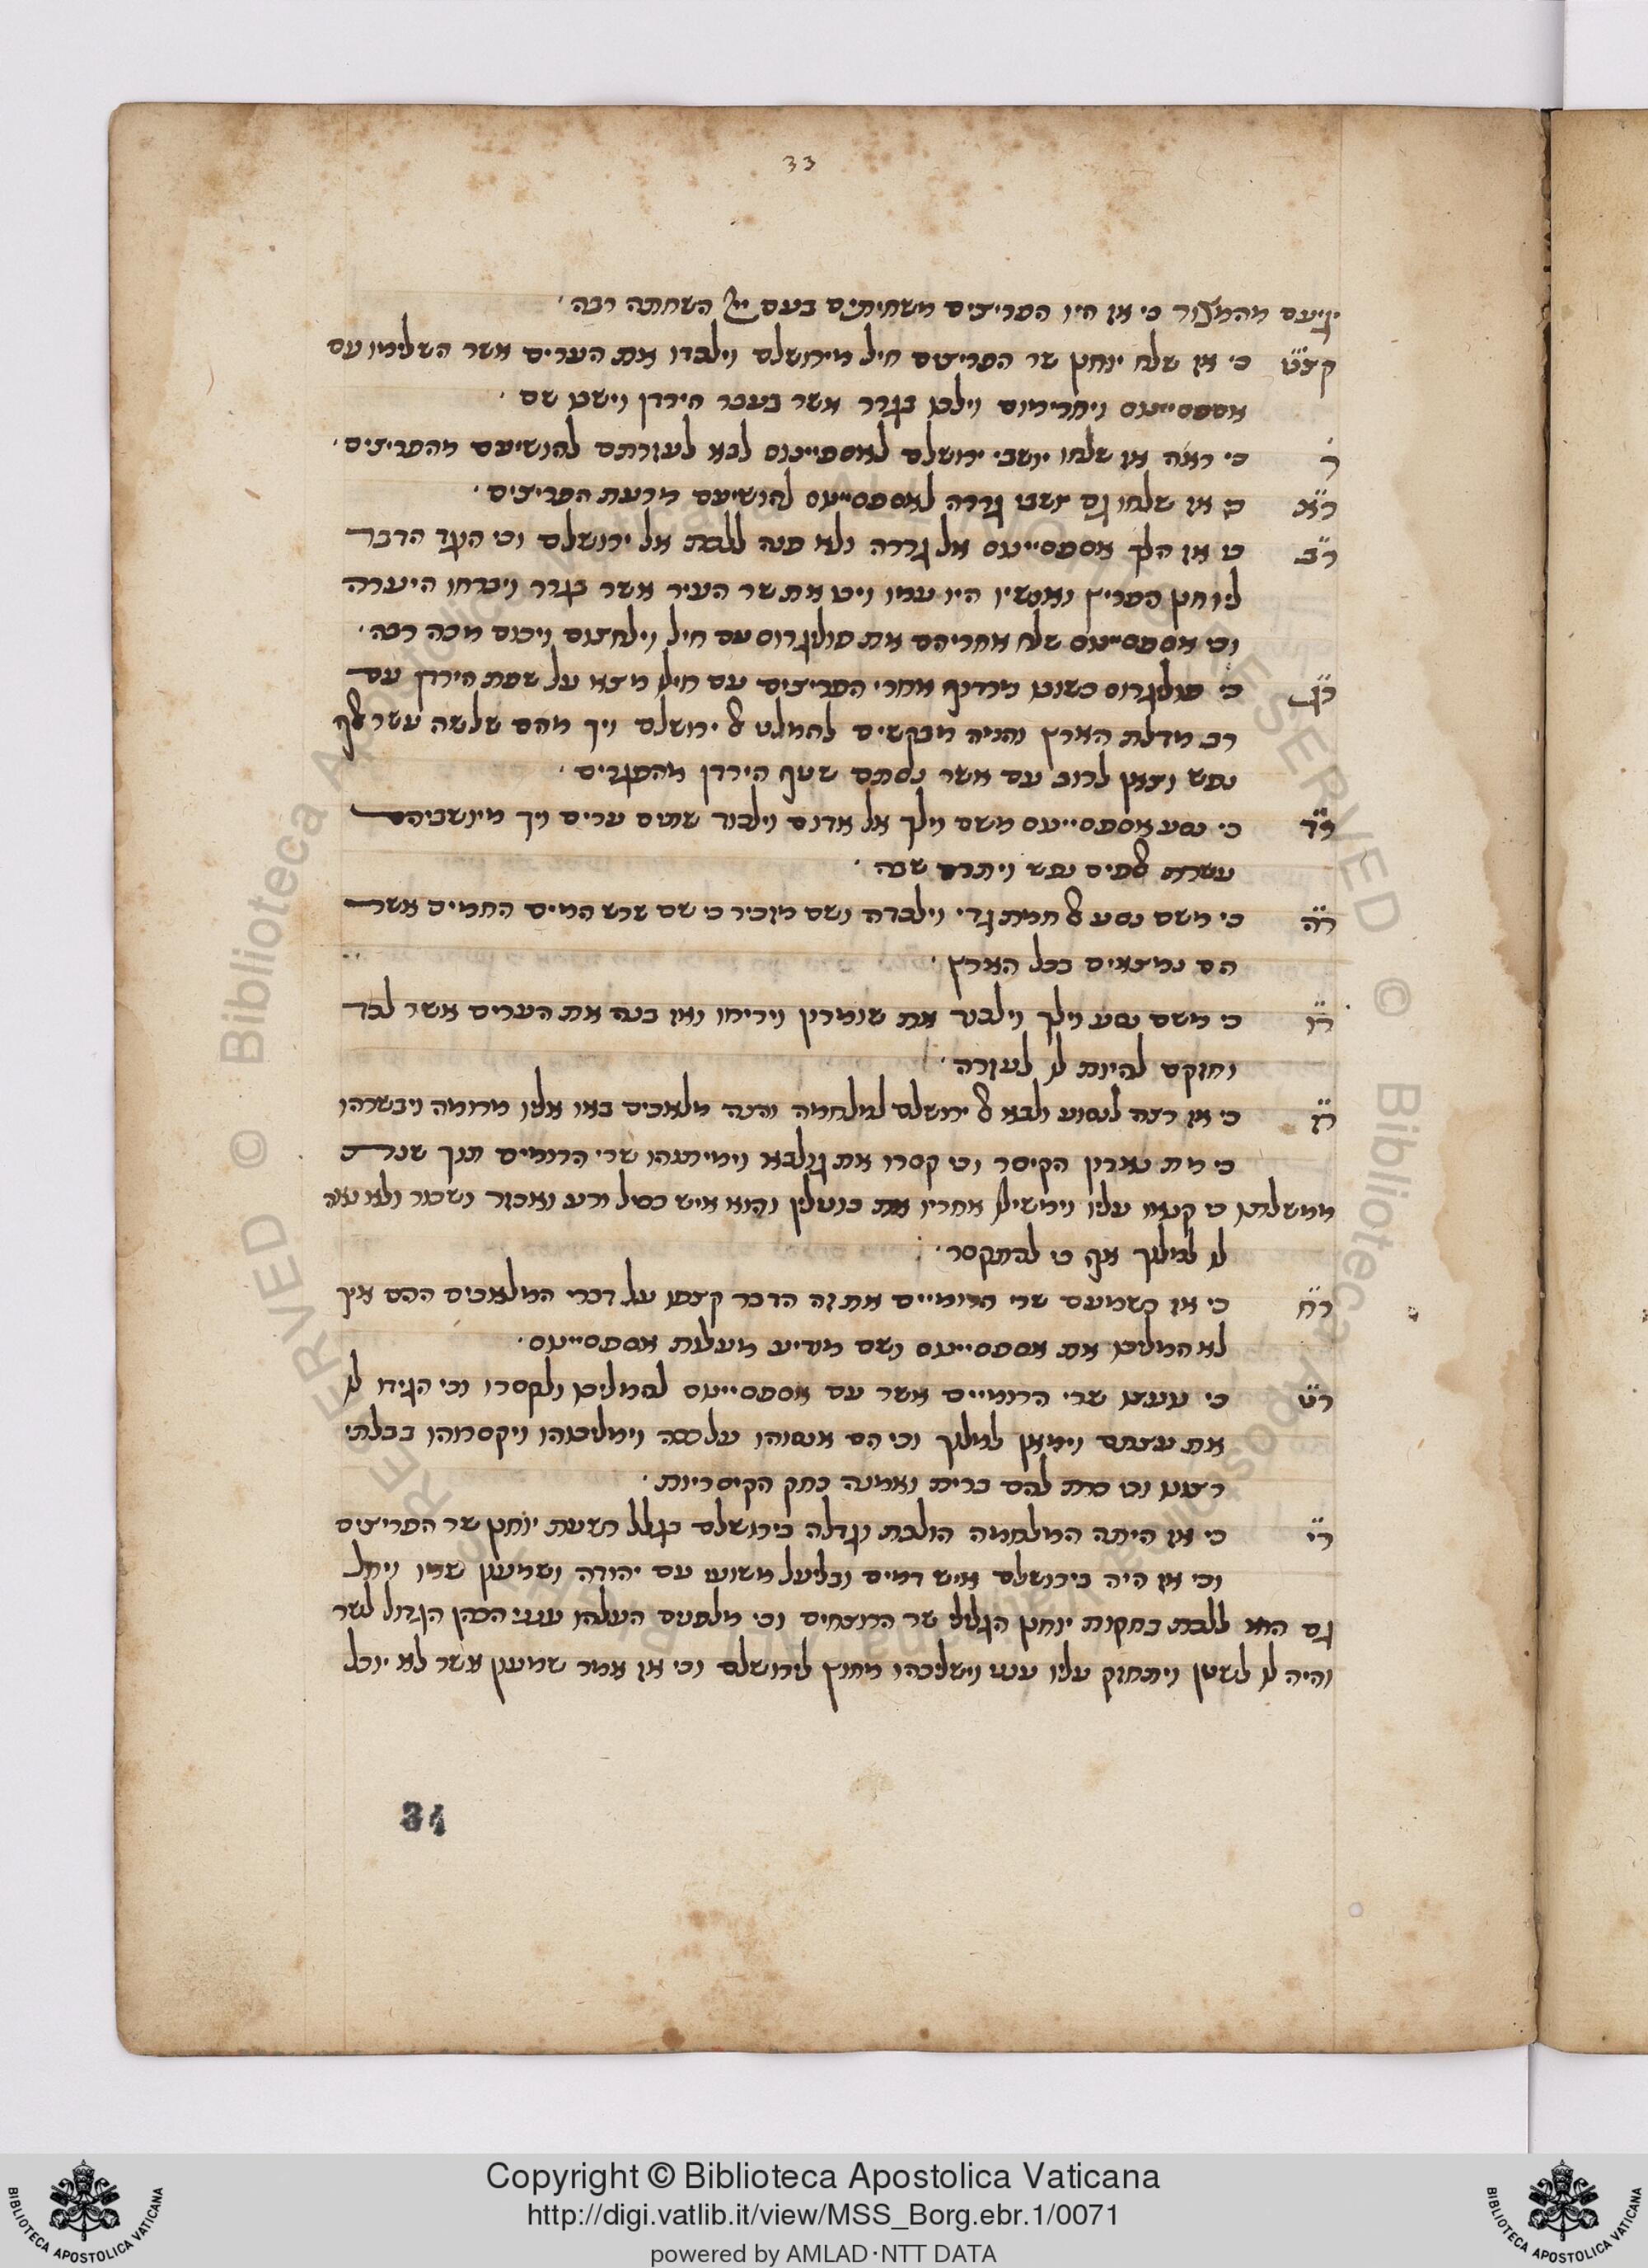 33
ויגיעם מהמצור כי אז היו הפריצים משחיתים בעם יי השחתה רבה
קצ״ט כי אז שלח יוחנן שר הפריצים חיל מירושלם וילכדו את הערים אשר השלימו עם
אספסיינוס ויחרימום וילכו בגדר אשר בעבר הירדן וישבו שם
ר׳ כי ראה אז שלחו יושבי ירושלם לאספסיינוס לבא לעזרתם להושיעם מהפריצים
ר״א כי אז שלחו גם יושבי גדרה לאספסיינוס להושיעם מרעת הפריצים
ר״ב כי אז הלך אספסיינוס אל גדרה ולא פנה ללכת אל ירושלם וכי הוגד הדבר
ליוחנן הפריץ ואנשיו היו עמו ויכו את שר העיר אשר בגדר ויברחו היערה
וכי אספסיינוס שלח אחריהם את פולגדוס עם חיל וילחצום ויכום מכה רבה
ר״ג כי פולגדוס בשובו מרדוף אחרי הפריצים עם חילו מצא על שפת הירדן עם
רב מדלת הארץ והנה מבקשים להמלט אל ירושלם ויך מהם שלשה עשר אלף
נפש וצאן לרוב עם אשר נסתם שטף הירדן מהפגרים
ר״ד כי נסע אספסיינוס משם וילך אל אדום וילכוד שתים ערים ויך מיושביהם
עשרת אלפים נפש ויתרם שבה
ר״ה כי משם נסע אל חמת גדי וילכדה ושם מזכיר כי שם שרש המים החמים אשר
הם נמצאים בכל הארץ
ר״ו כי משם נסע וילך וילכוד את שומרון ויריחו ואז בנה את הערים אשר לכד
וחזקם להיות לו לעזרה
ר״ז כי אז רצה לנסוע ולבא אל ירושלם למלחמה והנה מלאכים באו אליו מרומה ויבשרהו
כי מת נארון הקיסר וכי קסרו את גולבא וימיתוהו שרי הרומים תוך שנת
ממשלתו כי קנאו עליו וימשילו אחריו את בוטלין והוא איש כסיל ורע ואכזר ושכור ולא נאה
לו למלוך אף כי להתקסר
ר״ח כי אז כשמעם שרי הרומיים את זה הדבר קצפו על דברי המלאכים ההם איך
לא המליכו את אספסיינוס ושם מודיע מעלות אספסיינוס
ר״ט כי נועצו שרי הרומיים אשר עם אספסיינוס להמליכו ולקסרו וכי הגידו לו
את עצתם וימאן למלוך וכי הם אנסוהו על ככה וימליכוהו ויקסרוהו בבלתי
רצונו וכי כרת להם ברית ואמנה כחק הקיסריות
ר״י כי אז היתה המלחמה הולכת וגדלה בירושלם בגלל רשעת יוחנן שר הפריצים
וכי אז היה בירושלם איש דמים ובליעל משועי עם יהודה ושמעון שמו ויחל
גם הוא ללכת בחקות יוחנן הגלילי שר הרוצחים וכי מלפנים העלהו ענני הכהן הגדול לשר
והיה לו לשטן ויתחזק עליו ענני וישליכהו מחוץ לירושלם וכי אז אמר שמעון אשר לא יוכל
34
Copyright © Biblioteca Apostolica Vaticana
http://digi.vatlib.it/view/MSS_Borg.ebr.1/0071
powered by AMLAD·NTT DATA